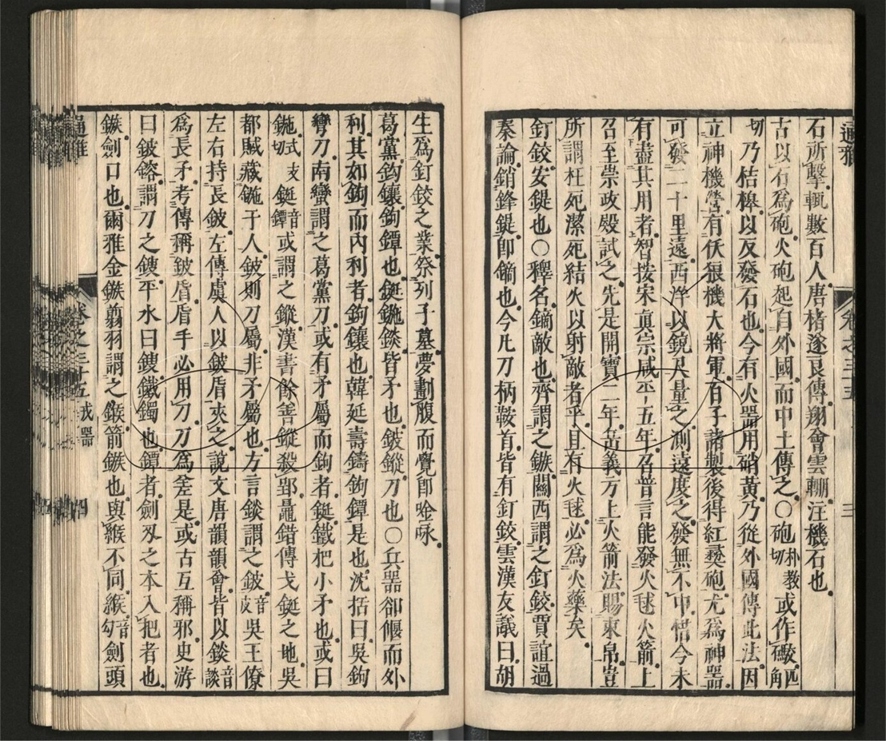 通雅
卷之三十五
三
石所擊輒數百人唐褚遂良傳翔會雲輣注機石也
古以有爲砲火砲起自外國而中土傳之〇砲朴教切或作礮匹解
切乃桔槔以反發石也今有火器用硝黃乃從外國傳此法因
立神機營有伏狼機大將軍百子諸製後得紅彝砲尤爲神器
可發二十里遠西洋以鏡尺量之測遠度之發無不中惜今未
有盡其用者智按宋眞宗咸平五年召普言能發火毬火箭上
召至崇政殿試之先是開寶二年岳義方上火箭法賜東帛豈
所謂枉死潔死結火以射敵者乎且有火毬必爲火藥矣
釘鉸安鍉也〇釋名鏑敵也齊謂之鏃關西謂之釘鉸賈誼過
秦論銷鋒鍉卽鏑也今凡刀柄鞍首皆有釘鉸雲漢友議曰胡
生爲釘鉸之業祭列子墓夢劃腹而覺卽唫咏
葛黨鉤鑲鉤鐔也鋌鍦錟皆矛也鈹鏦刀也〇兵器卻偃而外
利其如鉤而內利者鉤鑲也韓延壽鑄鉤鐔是也沈括曰吳鉤
彎刀南蠻謂之葛黨刀或有矛屬而鉤者鋌鐵杷小矛也或曰
鍦式支切鋌鐔音或謂之鏦漢書餘善鏦殺郢鼂錯傳戈鋌之地吳
都賦藏鍦于人鈹則刀屬非矛屬也方言錟謂之鈹音皮吳王僚
左右持長鈹左傳虞人以鈹盾夾之說文唐韻韻會皆以錟音談
爲長矛考傳稱鈹盾盾手必用刀刀爲差是或古互稱邪史游
曰鈹鎔謂刀之鍑平水曰鍑鐵鐲也鐔者劍刄之本入把者也
鏃劍口也爾雅金鏃翦羽謂之鍭箭鏃也與緱不同緱音勾劍頭
通雅
卷之三十五 戎器
四